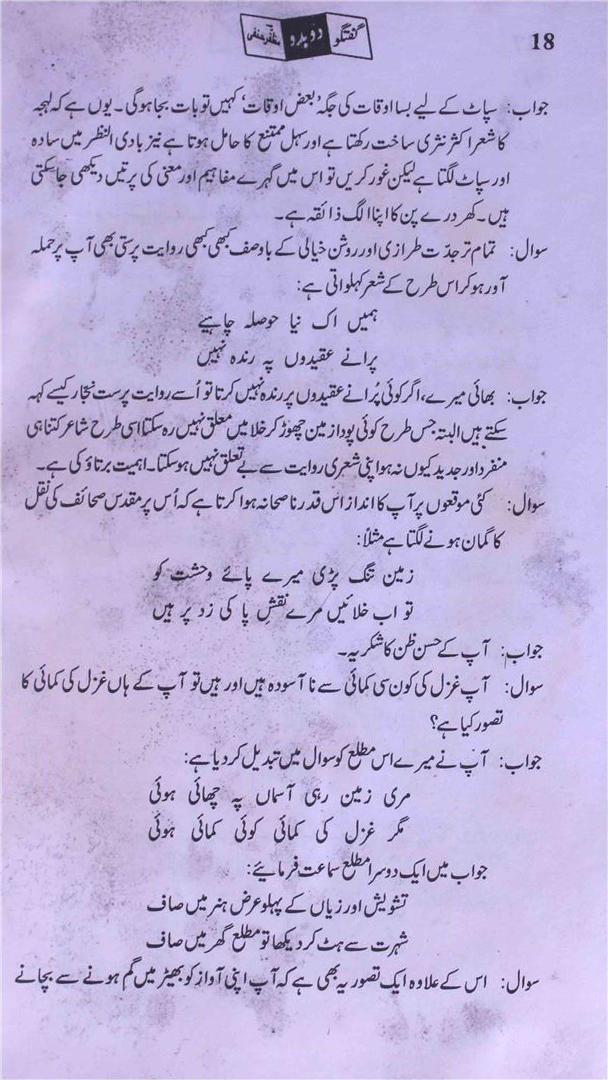 18
گفتگو دوبدو مظفر حنفی
جواب: سپاٹ کے لیے بسا اوقات کی جگہ 'بعض اوقات' کہیں تو بات بجا ہوگی۔ یوں ہے کہ لہجہ
کا شعر اکثر نثری ساخت رکھتا ہے اور سہل ممتنع کا حامل ہوتا ہے نیز بادی النظر میں سادہ
اور سپاٹ لگتا ہے لیکن غور کریں تو اس میں گہرے مفاہیم اور معنی کی پرتیں دیکھی جاسکتی
ہیں۔ کھردرے پن کا اپنا الگ ذائقہ ہے۔
سوال: تمام تر جدّت طرازی اور روشن خیالی کے باوصف کبھی کبھی روایت پرستی بھی آپ پر حملہ
آور ہوکر اس طرح کے شعر کہلواتی ہے:
ہمیں اک نیا حوصلہ چاہیے
پرانے عقیدوں پہ رندہ نہیں
جواب: بھائی میرے، اگر کوئی پُرانے عقیدوں پر رندہ نہیں کرتا تو اُسے روایت پرست نجّار کیسے کہہ
سکتے ہیں البتہ جس طرح کوئی پودا زمین چھوڑ کر خلا میں معلق نہیں رہ سکتا اسی طرح شاعر کتنا ہی
منفرد اور جدید کیوں نہ ہو اپنی شعری روایت سے بے تعلق نہیں ہوسکتا۔ اہمیت برتاؤ کی ہے۔
سوال: کئی موقعوں پر آپ کا انداز اس قدر ناصحانہ ہوا کرتا ہے کہ اُس پر مقدس صحائف کی نقل
کا گمان ہونے لگتا ہے مثلاً:
زمین تنگ پڑی میرے پائے وحشت کو
تو اب خلائیں مرے نقشِ پا کی زد پر ہیں
جواب: آپ کے حسن ظن کا شکریہ۔
سوال: آپ غزل کی کون سی کمائی سے نا آسودہ ہیں اور ہیں تو آپ کے ہاں غزل کی کمائی کا
تصور کیا ہے؟
جواب: آپ نے میرے اس مطلع کو سوال میں تبدیل کردیا ہے:
مری زمین رہی آسماں پہ چھائی ہوئی
مگر غزل کی کمائی کوئی کمائی ہوئی
جواب میں ایک دوسرا مطلع سماعت فرمائیے:
تشویش اور زیاں کے پہلو عرض ہنر میں صاف
شہرت سے ہٹ کر دیکھا تو مطلع گھر میں صاف
سوال: اس کے علاوہ ایک تصور یہ بھی ہے کہ آپ اپنی آواز کو بھیڑ میں گم ہونے سے بچانے